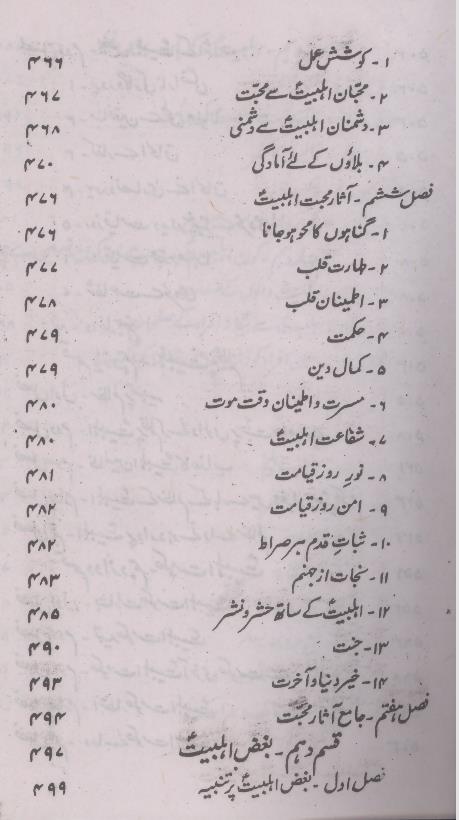 ۱۔ کوشش عمل ۴۶۶
۲۔ محبان اہلبیتؑ سے محبت ۴۶۷
۳۔ دشمنان اہلبیتؑ سے دشمنی ۴۶۸
۴۔ بلاؤں کے لئے آمادگی ۴۷۰
فصل ششم ۔ آثار محبت اہلبیتؑ ۴۷۶
۱۔ گناہوں کا محو ہو جانا ۴۷۶
۲۔ طہارت قلب ۴۷۷
۳۔ اطمینان قلب ۴۷۸
۴۔ حکمت ۴۷۹
۵۔ کمال دین ۴۷۹
۶۔ مسرت و اطمینان وقت موت ۴۸۰
۷۔ شفاعت اہلبیتؑ ۴۸۰
۸۔ نورِ روز قیامت ۴۸۱
۹۔ امن روز قیامت ۴۸۲
۱۰۔ ثباتِ قدم بر صراط ۴۸۲
۱۱۔ نجات از جہنم ۴۸۳
۱۲۔ اہلبیتؑ کے ساتھ حشر و نشر ۴۸۵
۱۳۔ جنت ۴۹۰
۱۴۔ خیر دنیا و آخرت ۴۹۳
فصل ہفتم ۔ جامع آثار محبّت ۴۹۴
قسم دہم ۔ بغض اہلبیتؑ ۴۹۷
فصل اول ۔ بغض اہلبیتؑ پر تنبیہ ۴۹۹